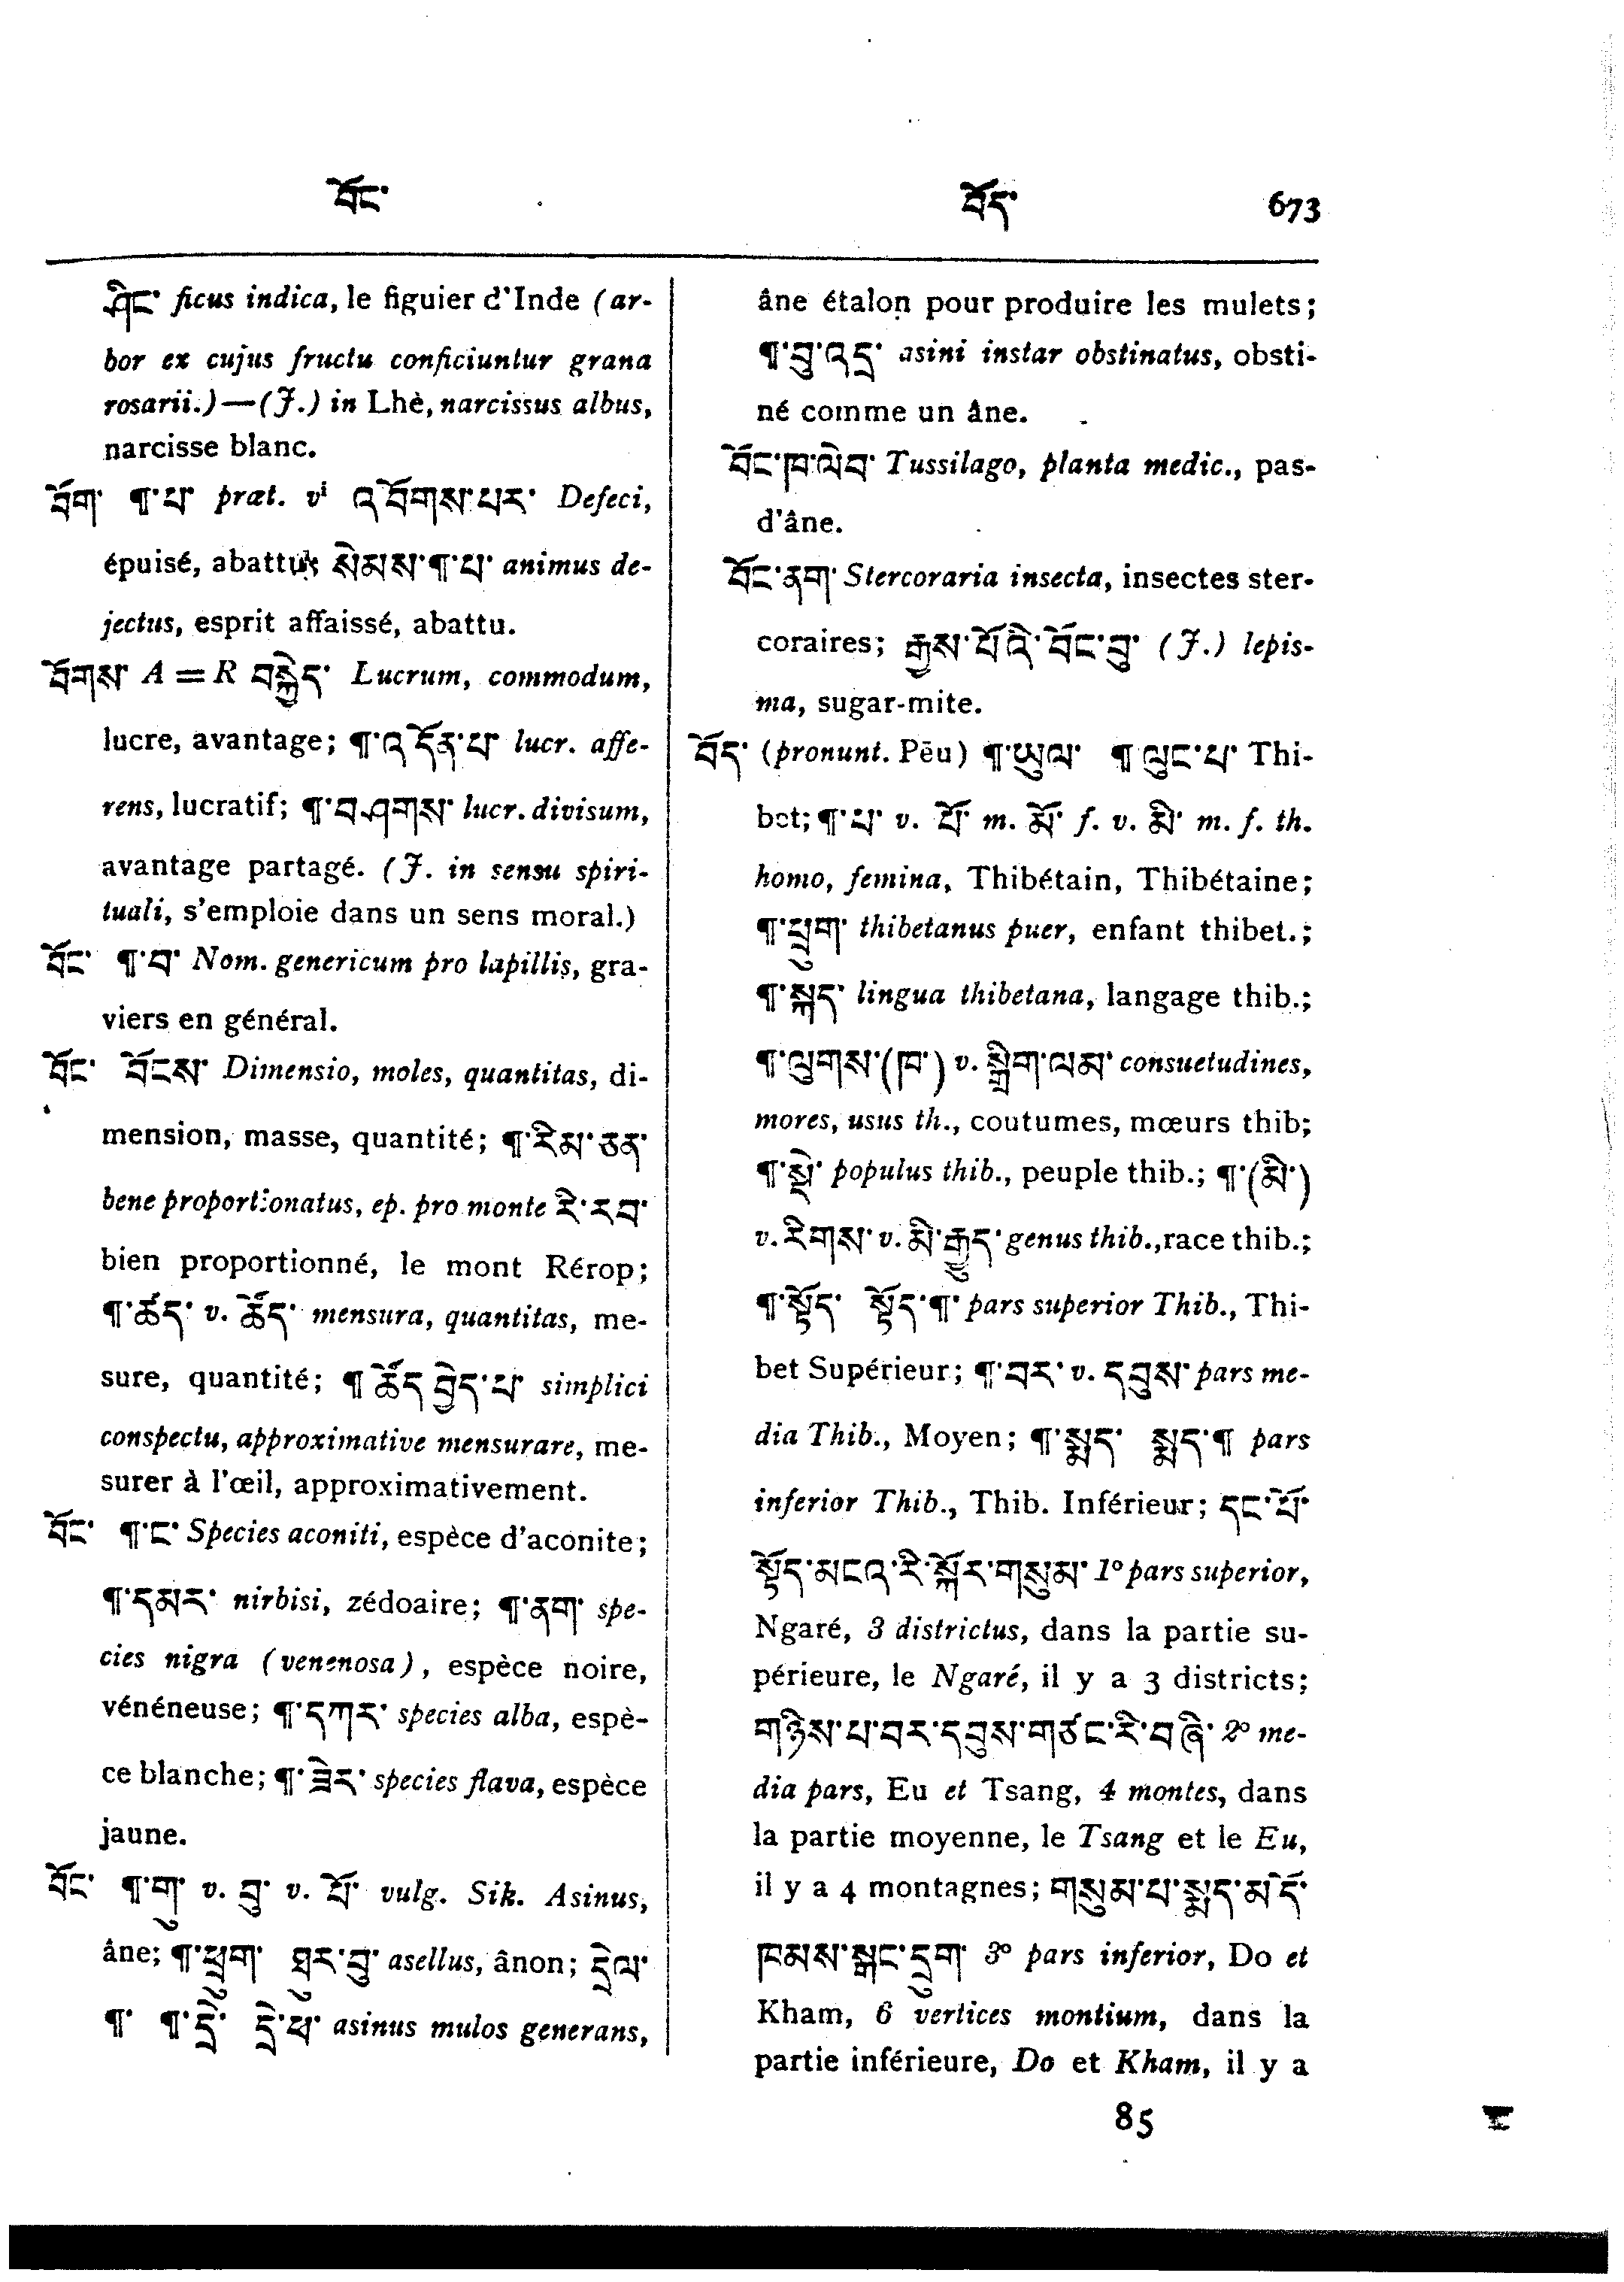 བོང་
བོད་
673
ཤིང་ ficus indica, le figuier d'Inde (ar-
bor ex cujus fructu conficiuntur grana
rosarii.)—(J.) in Lhè, narcissus albus,
narcisse blanc.
བོག ¶་པ་ præt. vi འབོགས་པར་ Defeci,
épuisé, abattu; སེམས་¶་པ་ animus de-
jectus, esprit affaissé, abattu.
བོགས་ A = R བསྐྱེད་ Lucrum, commodum,
lucre, avantage; ¶་འདོན་པ་ lucr. affe-
rens, lucratif; ¶་བ་ཤགས་ lucr. divisum,
avantage partagé. (J. in sensu spiri-
tuali, s'emploie dans un sens moral.)
བོང་ ¶་བ་ Nom. genericum pro lapillis, gra-
viers en général.
བོང་ བོངས་ Dimensio, moles, quantitas, di-
mension, masse, quantité; ¶་རིམ་ཅན་
bene proportionatus, ep. pro monte རི་རབ་
bien proportionné, le mont Rérop;
¶་ཚད་ v. ཚོད་ mensura, quantitas, me-
sure, quantité; ¶ ཚོད་བྱེད་པ་ simplici
conspectu, approximative mensurare, me-
surer à l'œil, approximativement.
བོང་ ¶་ང་ Species aconiti, espèce d'aconite;
¶་དམར་ nirbisi, zédoaire; ¶་ནག་ spe-
cies nigra (venenosa), espèce noire,
vénéneuse; ¶་དཀར་ species alba, espè-
ce blanche; ¶་ཟེར་ species flava, espèce
jaune.
བོང་ ¶་གུ་ v. བུ་ v. པོ་ vulg. Sik. Asinus,
âne; ¶་ཕྲུག་ ཐུར་བུ་ asellus, ânon; དྲེལ་
¶་ ¶་དྲེ་ དྲེ་ཕ་ asinus mulos generans,
âne étalon pour produire les mulets;
¶་བུ་འདྲ་ asini instar obstinatus, obsti-
né comme un âne.
བོང་ཁ་ལེབ་ Tussilago, planta medic., pas-
d'âne.
བོང་ནག་ Stercoraria insecta, insectes ster-
coraires; རྒྱས་པོའི་བོང་བུ་ (J.) lepis-
ma, sugar-mite.
བོད་ (pronunt. Pēu) ¶་ཡུལ་ ¶ ལུང་པ་ Thi-
bet; ¶་པ་ v. པོ་ m. མོ་ f. v. མི་ m. f. th.
homo, femina, Thibétain, Thibétaine;
¶་ཕྲུག་ thibetanus puer, enfant thibet.;
¶་སྐད་ lingua thibetana, langage thib.;
¶་ལུགས་(ཁ་) v. སྒྲིག་ལམ་ consuetudines,
mores, usus th., coutumes, mœurs thib;
¶་སྡེ་ populus thib., peuple thib.; ¶་(མི་)
v. རིགས་ v. མི་རྒྱུད་ genus thib., race thib.;
¶་སྟོད་ སྟོད་¶་ pars superior Thib., Thi-
bet Supérieur; ¶་བར་ v. དབུས་ pars me-
dia Thib., Moyen; ¶་སྨད་ སྨད་¶ pars
inferior Thib., Thib. Inférieur; དང་པོ་
སྟོད་མངའ་རི་སྐོར་གསུམ་ 1º pars superior,
Ngaré, 3 districtus, dans la partie su-
périeure, le Ngaré, il y a 3 districts;
གཉིས་པ་བར་དབུས་གཙང་རི་བཞི་ 2º me-
dia pars, Eu et Tsang, 4 montes, dans
la partie moyenne, le Tsang et le Eu,
il y a 4 montagnes; གསུམ་པ་སྨད་མདོ་
ཁམས་སྒང་དྲུག་ 3º pars inferior, Do et
Kham, 6 vertices montium, dans la
partie inférieure, Do et Kham, il y a
85